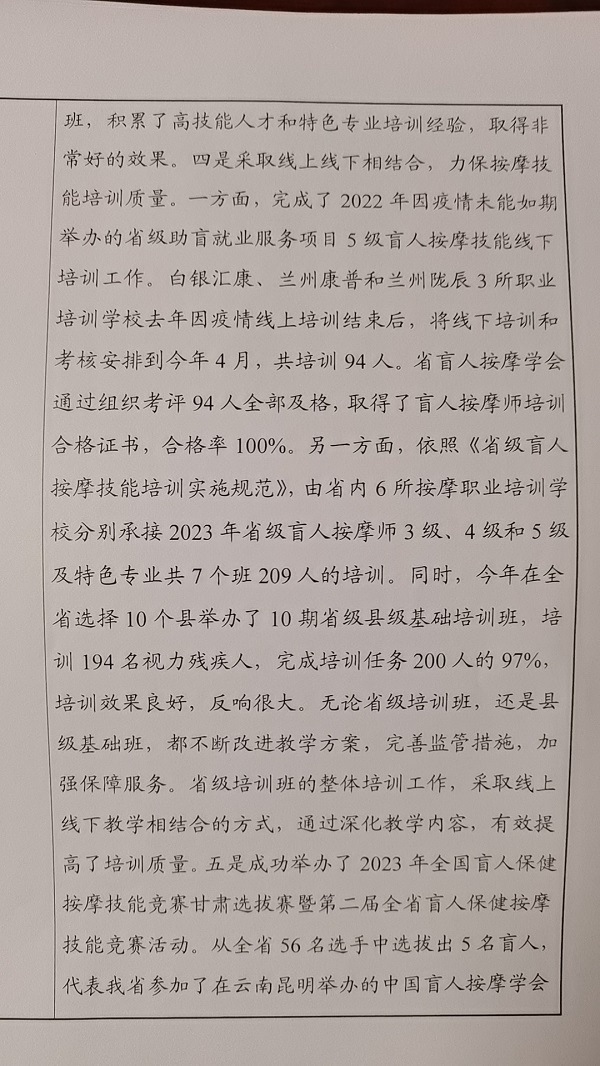 班，积累了高技能人才和特色专业培训经验，取得非
常好的效果。四是采取线上线下相结合，力保按摩技
能培训质量。一方面，完成了 2022 年因疫情未能如期
举办的省级助盲就业服务项目 5 级盲人按摩技能线下
培训工作。白银汇康、兰州康普和兰州陇辰 3 所职业
培训学校去年因疫情线上培训结束后，将线下培训和
考核安排到今年 4 月，共培训 94 人。省盲人按摩学会
通过组织考评 94 人全部及格，取得了盲人按摩师培训
合格证书，合格率 100%。另一方面，依照《省级盲人
按摩技能培训实施规范》，由省内 6 所按摩职业培训学
校分别承接 2023 年省级盲人按摩师 3 级、4 级和 5 级
及特色专业共 7 个班 209 人的培训。同时，今年在全
省选择 10 个县举办了 10 期省级县级基础培训班，培
训 194 名视力残疾人，完成培训任务 200 人的 97%，
培训效果良好，反响很大。无论省级培训班，还是县
级基础班，都不断改进教学方案，完善监管措施，加
强保障服务。省级培训班的整体培训工作，采取线上
线下教学相结合的方式，通过深化教学内容，有效提
高了培训质量。五是成功举办了 2023 年全国盲人保健
按摩技能竞赛甘肃选拔赛暨第二届全省盲人保健按摩
技能竞赛活动。从全省 56 名选手中选拔出 5 名盲人，
代表我省参加了在云南昆明举办的中国盲人按摩学会